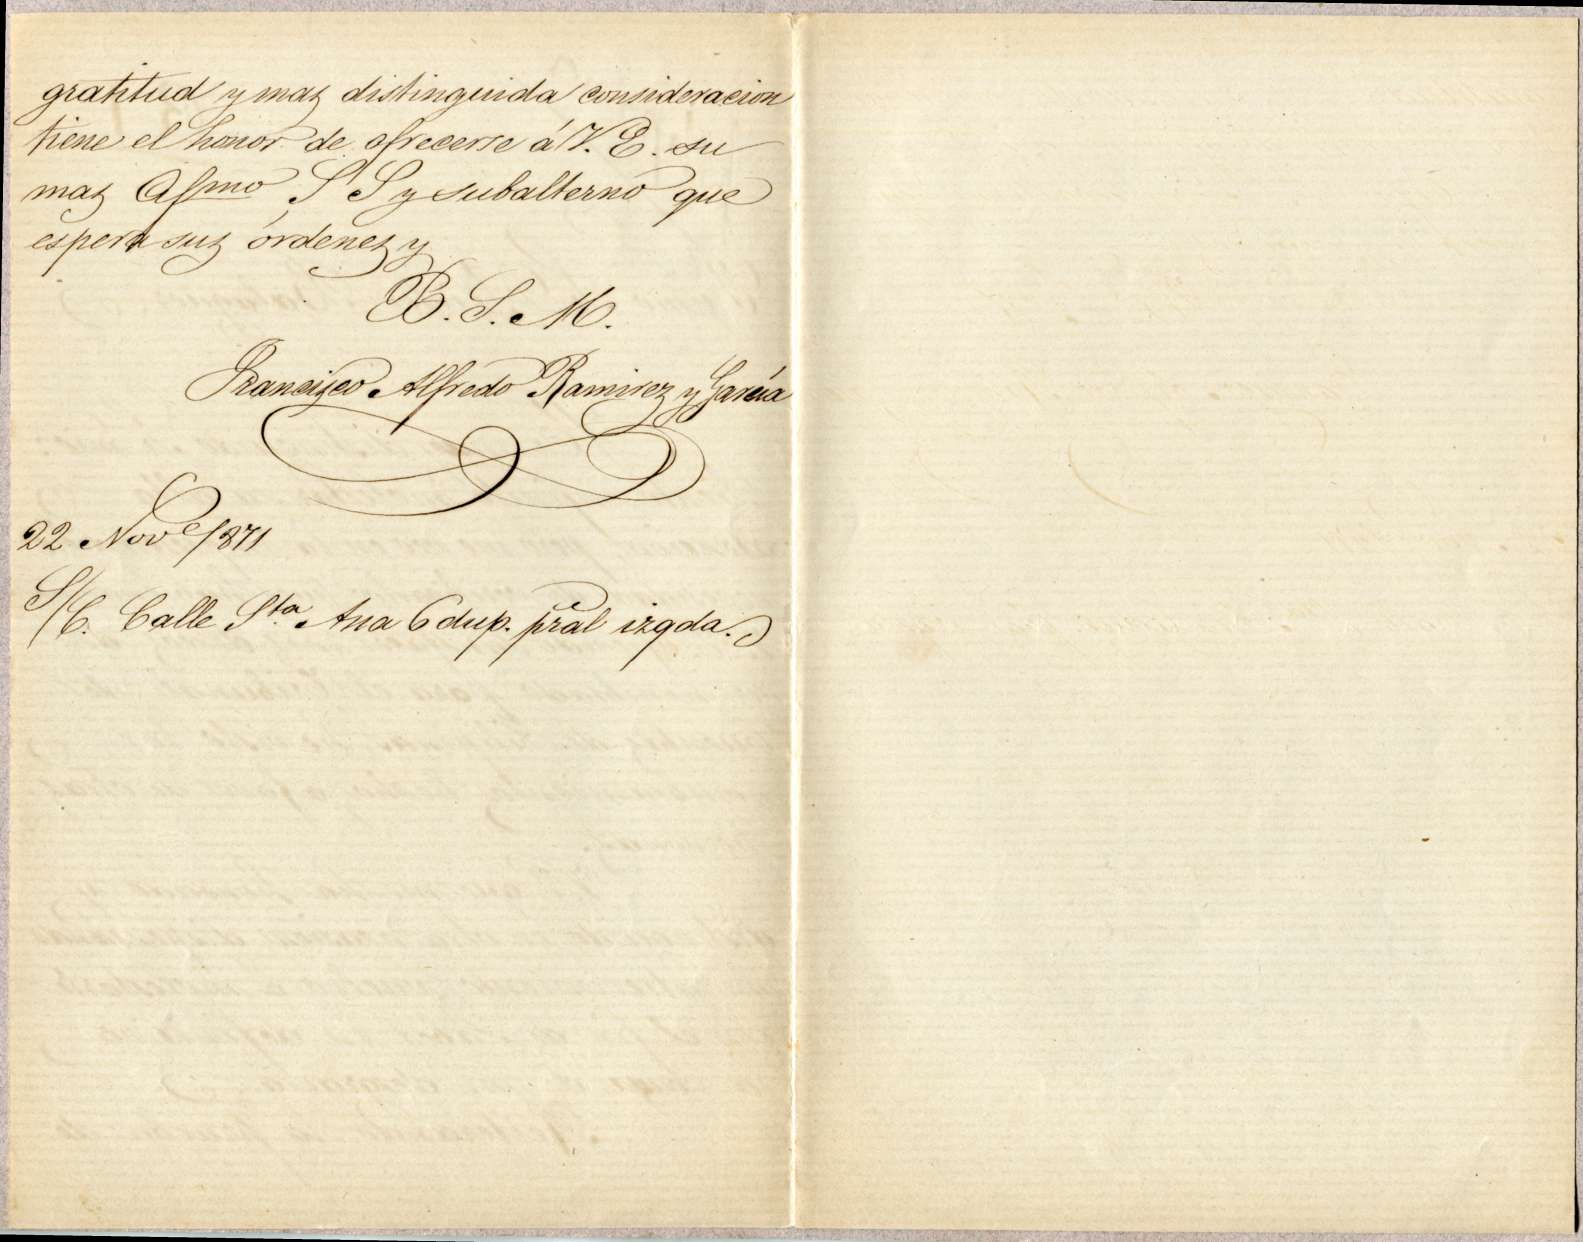 gratitud y mas distinguida consideracion
tiene el honor de ofrecerse á V. E. su
mas Afmo S S y subalterno que
espera sus órdenes y
B. S. M.
Francisco Alfredo Ramirez y García
22 Nove/1871
S/C. Calle Sta Ana 6 dup. pral izqda.